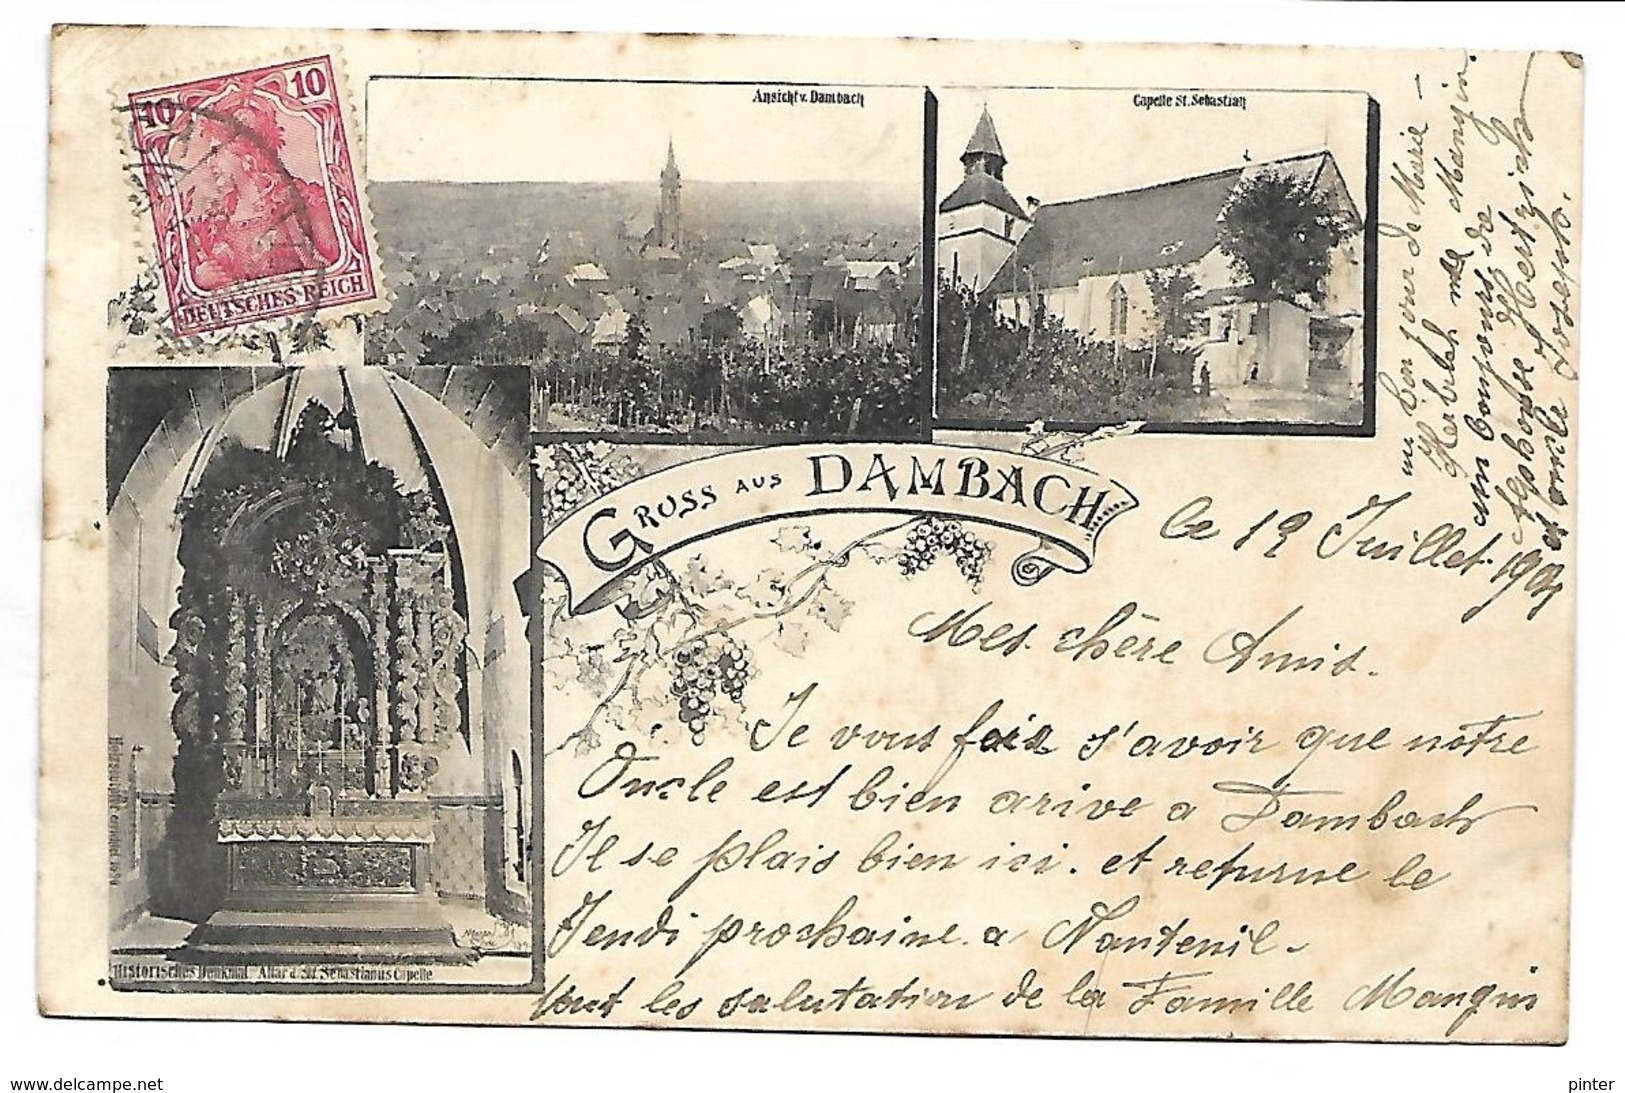 10 10
DEUTSCHES REICH
Ansicht v. Dambach
Capelle St. Sebastian
GRUSS AUS DAMBACH
Historisches Denkmal Altar d. St. Sebastianus Capelle
le 12 Juillet 190
Mes chère Amis.
Je vous fais s'avoir que notre
Oncle est bien arive a Dambach
Il se plais bien ici. et returne le
Jendi prochaine a Nanteuil.
tout les salutation de la Famille Mangin
un bon jour de Marie
Mangin.
un bonjours de
Alphonse Hertzich
et oncle Joseph.
www.delcampe.net
pinter